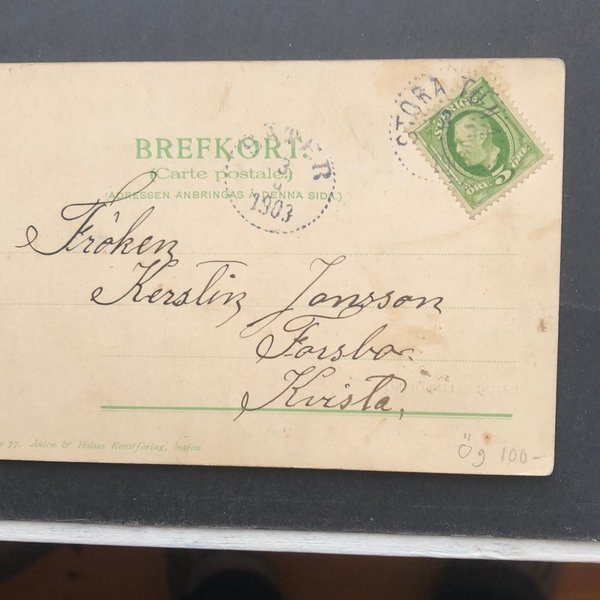 BREFKORT.
(Carte postale.)
(ADRESSEN ANBRINGAS Å DENNA SIDA.)
SÄTER
3
1903
STORA TU
SVERIGE
5
ÖRE ÖRE
Fröken
Kerstin Jansson
Forsbo
Kvista,
77. Åhlén & Holms Konstförlag, Insjön
Ög 100-